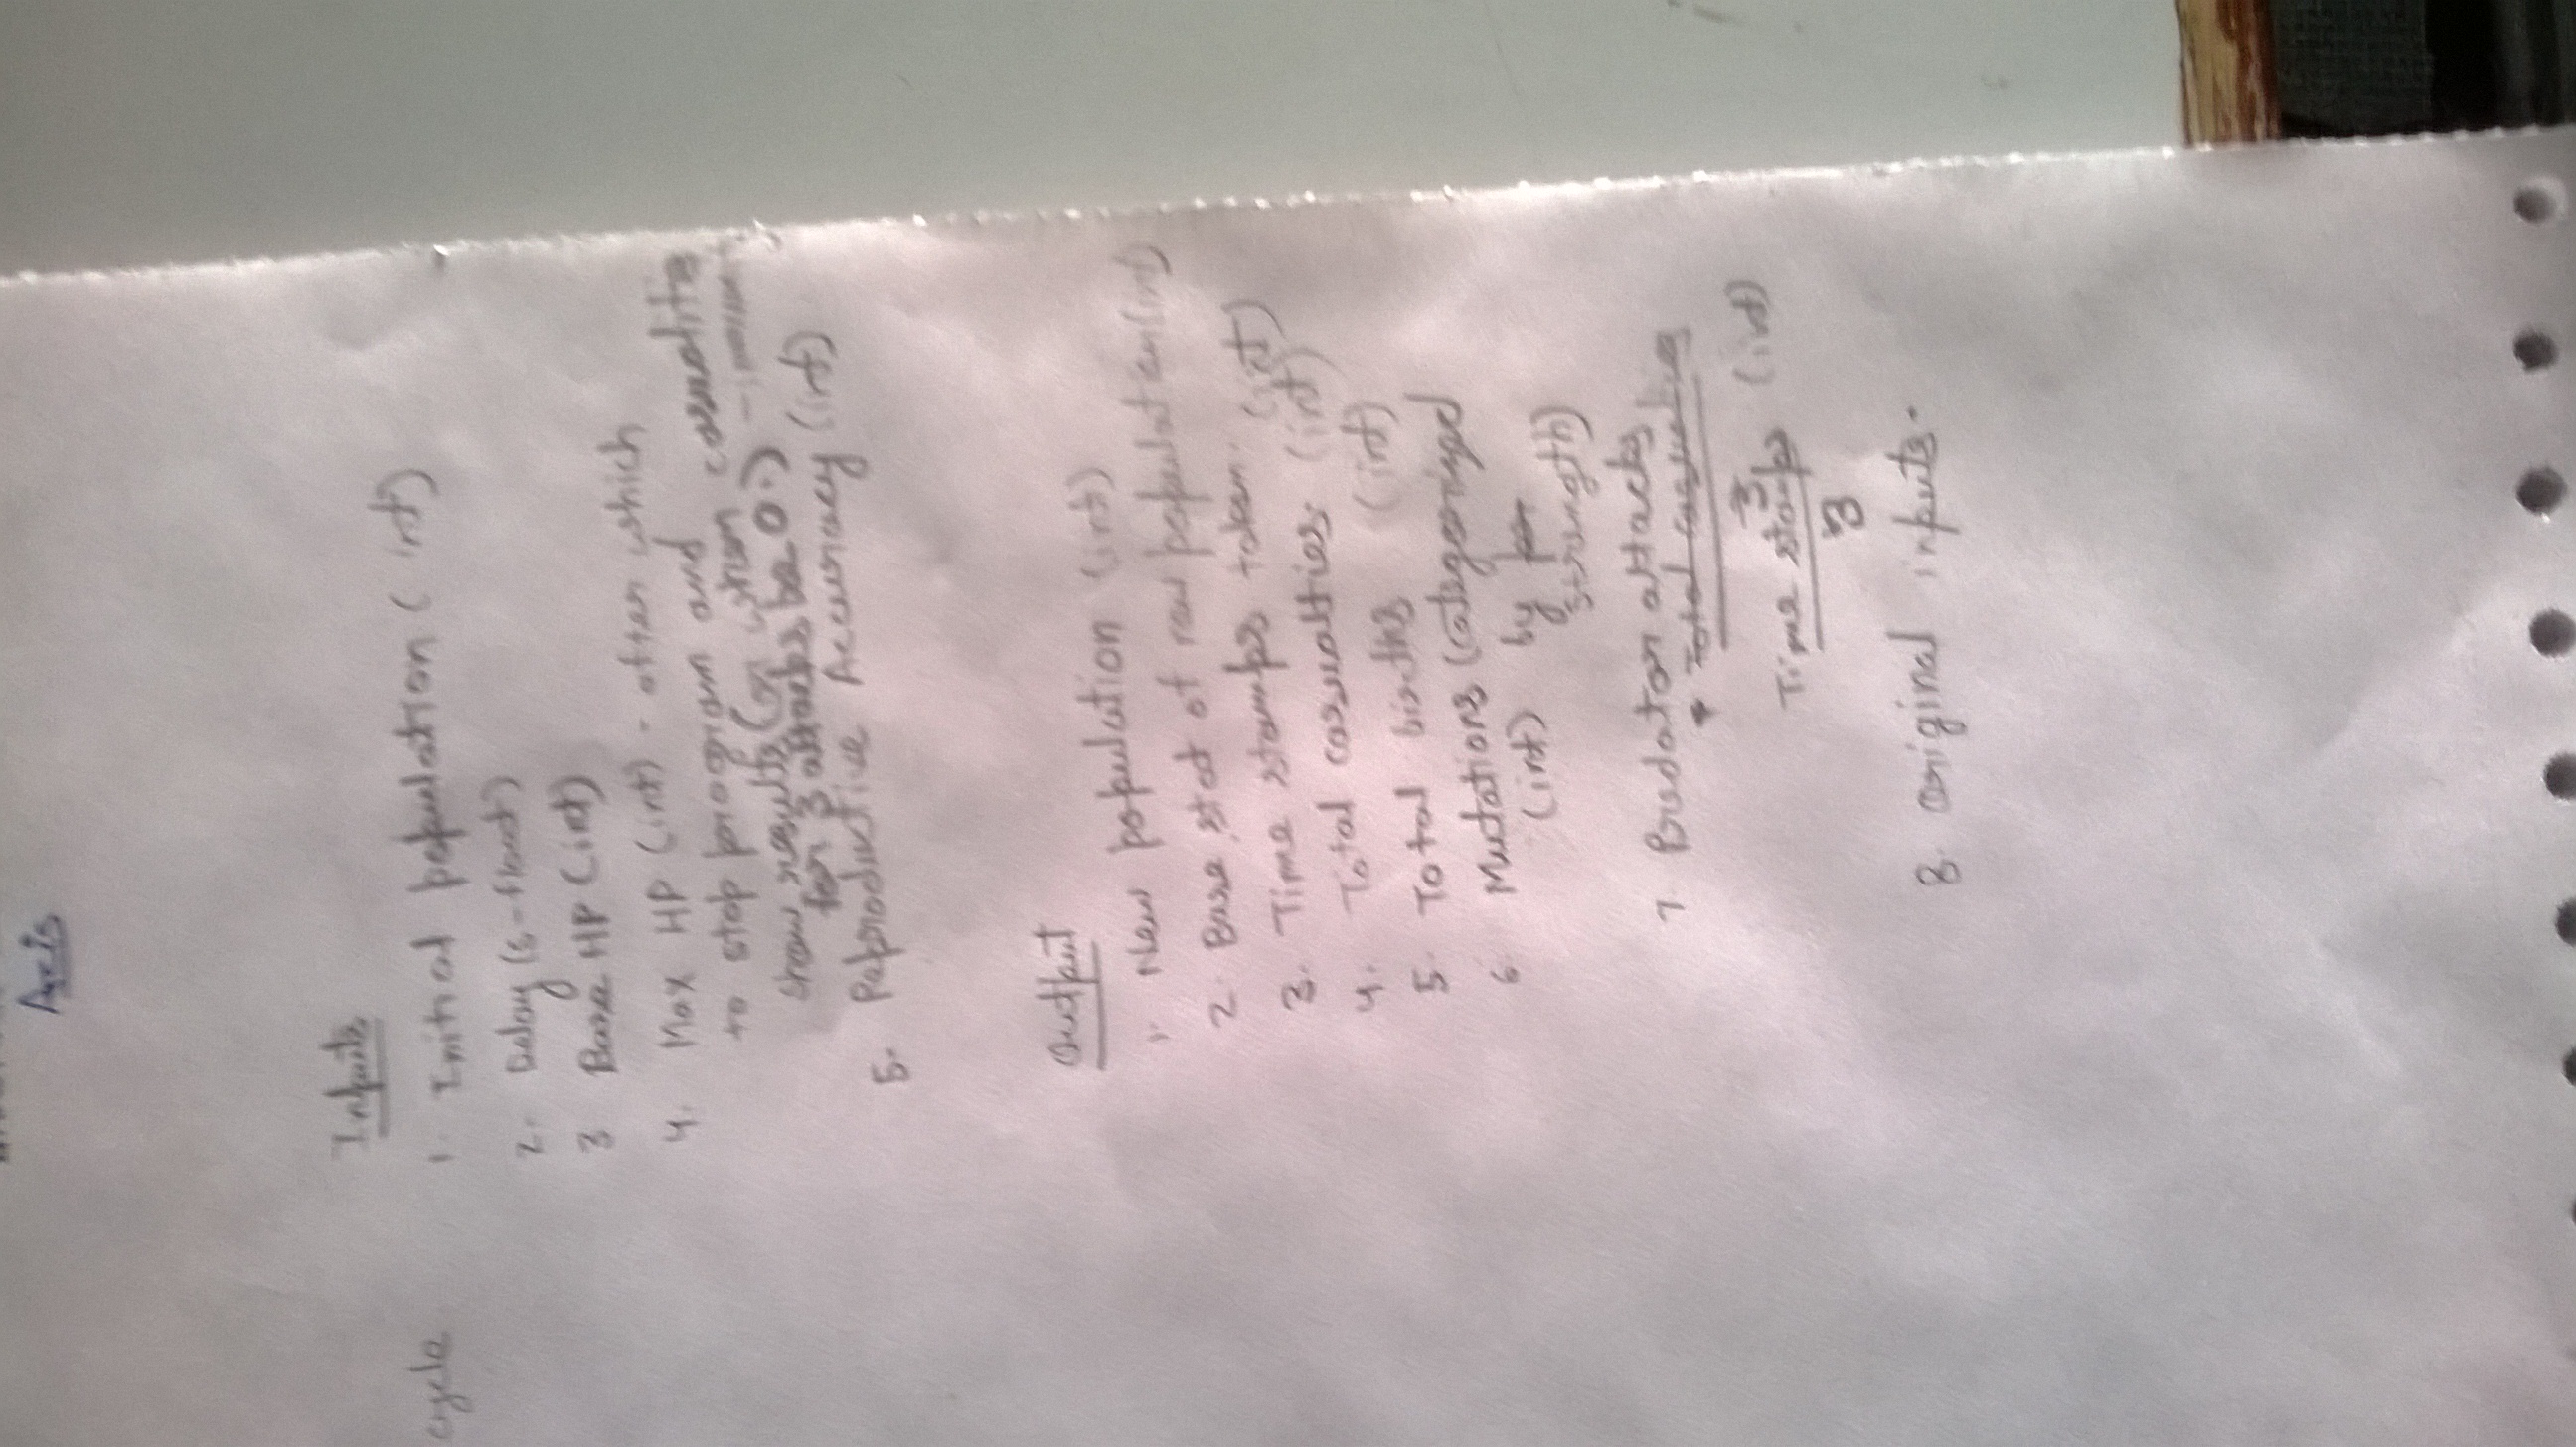 Axis
Inputs
cycle
1. Initial population (int)
2. Delay (s-float)
3 Base HP (int)
4. Max HP (int) - after which
to stop program and
show results (or when casualties
for 3 attacks be 0.)
5. Reproductive Accuracy (int)
Output
1. New population (int)
2. Base stat of new population (int)
3. Time stamps taken. (int)
4. Total casualties (int)
5. Total births (int)
6. Mutations (categorized
(int) by
strength)
7. Predator attacks
Total casualties
3
Time stamps (int)
3
8. original inputs.